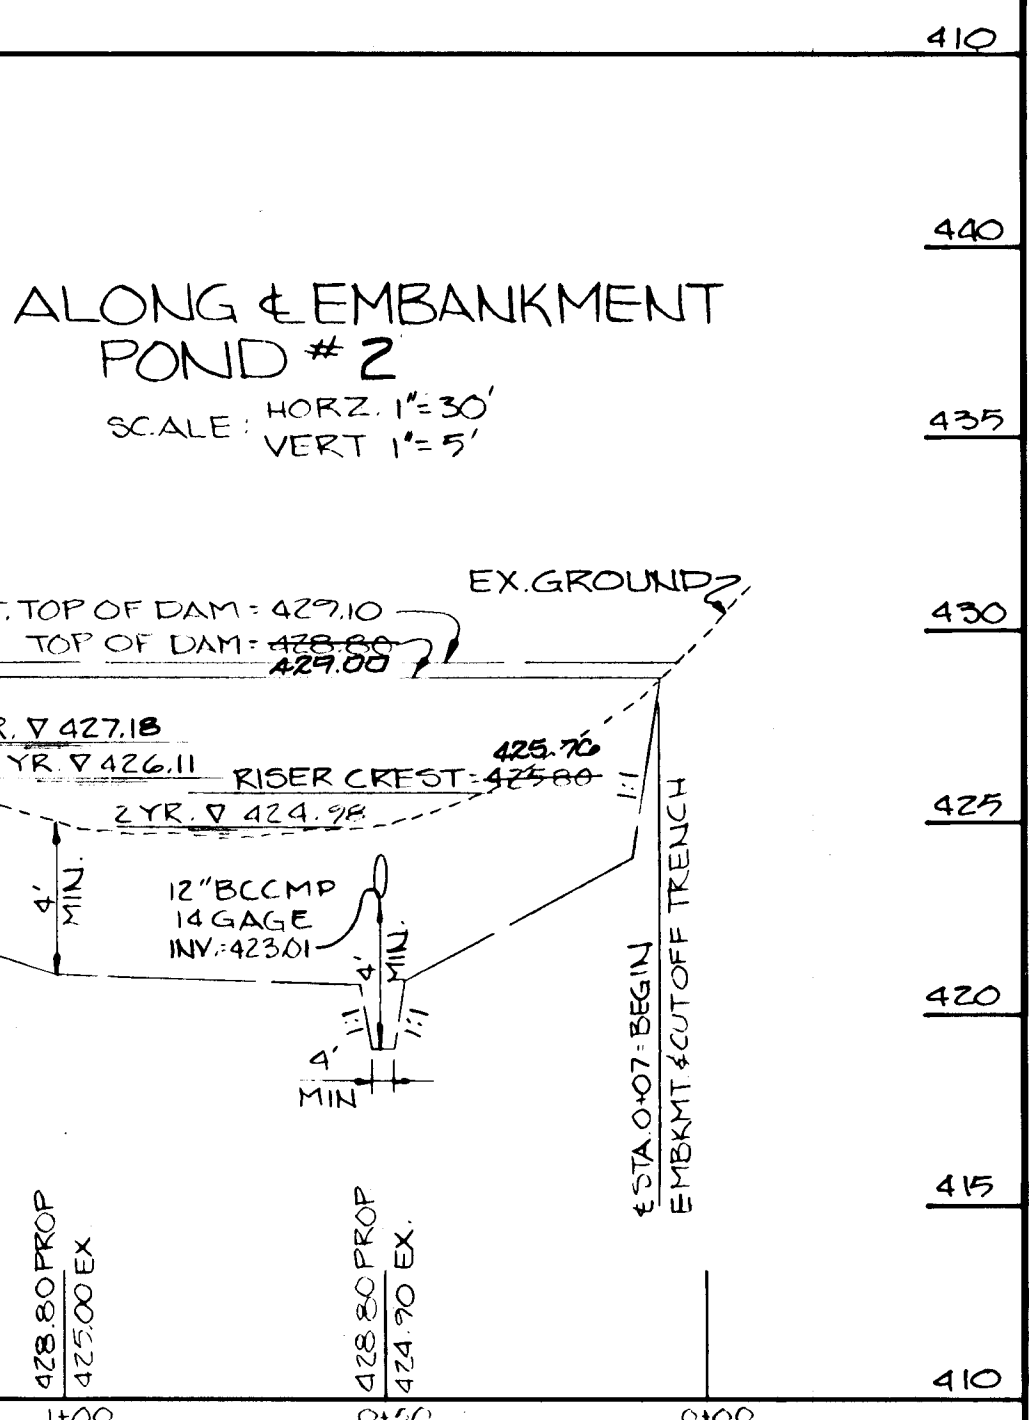 410
440
ALONG ℄ EMBANKMENT
POND # 2
SCALE: HORZ. 1"=30'
VERT 1"=5'
435
EX. GROUND
430
. TOP OF DAM = 429.10
TOP OF DAM = 428.80
429.00
R. ∇ 427.18
YR. ∇ 426.11
425.76
RISER CREST = 425.80
2 YR. ∇ 424.98
425
1:1
4' MIN.
12" BCCMP
14 GAGE
INV. = 423.01
4' MIN.
1:1
1:1
4'
MIN
420
℄ STA. 0+07 = BEGIN
EMBKMT. & CUTOFF TRENCH
415
428.80 PROP
425.00 EX.
428.80 PROP
424.90 EX.
410
1+00
0+50
0+00